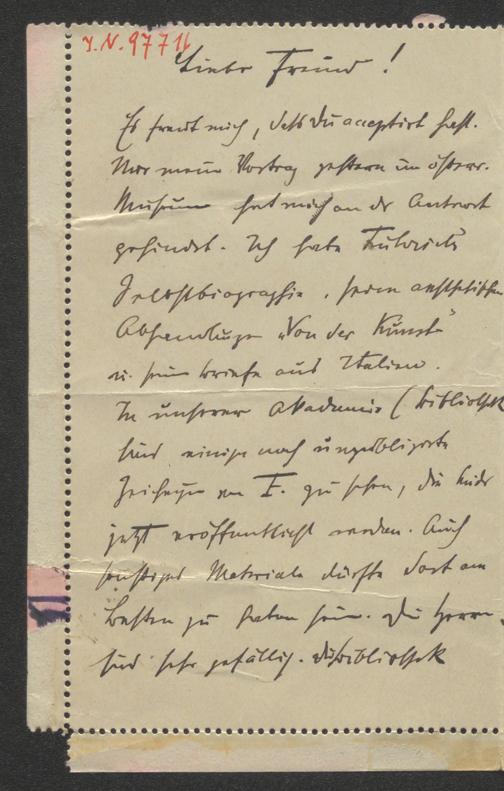 J. N. 97716
Lieber Freund!
Es freut mich, daß Du acceptirt hast.
Nur mein Vortrag gestern im österr.
Museum hat mich an der Antwort
gehindert. Ich habe Führichs
Selbstbiographie, seine aesthetischen
Abhandlungen „Von der Kunst“
u. seine Briefe aus Italien.
In unserer Akademie (Bibliothek
sind einige noch unpublizirte
Zeichnungen von F. zu sehen, die
jetzt veröffentlicht werden. Auch
sonstiges Materiale dürfte dort am
besten zu haben sein. Die Herren
sind sehr gefällig. Die Bibliothek